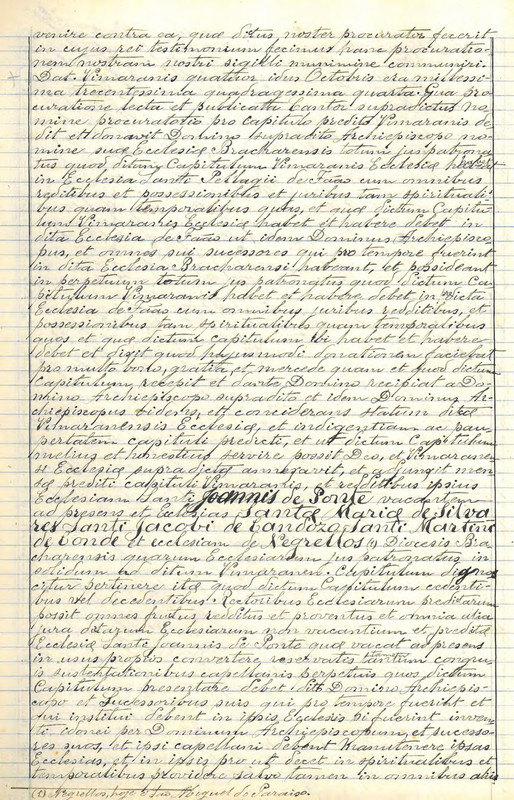 venire contra ea, quæ ditus, noster procurator fecerit
in cujus rei testimonium fecimus hanc procuratio-
nem nostram nostri sigilli munimine communiri.
Dat. Vimaranis quatuor idus Octobris era millessi-
ma trecentessima quadragessima quarta. Qua pro
curatione lecta et publicatta Cantor supradictus no
mine procuratotis pro capitulo predito Vimaranis de
dit et donavit Domino supradito Archiepiscopo no-
mine suæ Ecclesiæ Bracharensis totum jus patrona
tus quod ditum Capitulum Vimaranis Ecclesiæ habet
in Ecclesia Santi Pellagii de Faão cum omnibus
reditibus et possessionibus et juribus tam spirituali-
bus quam temporatibus quas, et quæ dictum Capitu-
tum Vimaranis Ecclesiæ habet et habere debet in
dita Ecclesia de Faão ut idem Dominus Archiepisco
pus, et omnes sui sucessores qui pro tempore fuerint
in dita Ecclesia Bracharensi habeant, et possideant
in perpetuum totum jus patronatus quod dictum Ca-
pitulum Vimaranis habet et habere debet in dicta
Ecclesia de Faão cum omnibus juribus redditibus, et
possessionibus tam spiritualibus quam temporalibus
quos et quæ dictum capitulum ibi habet et habere
debet et dixit quod hujusmodi donationem faciebat
pro multo bono, gratia, et mercede quam et quod dictum
Capitulum, recepit et darte Domino recipiat a Do-
mino Archiepiscopo supradito et idem Dominus Ar-
chiepiscopus videns, et considerans statum ditæ
Vimaranensis Ecclesiæ, et indigentiam ac pau-
pertatem capituli predicti, et ut dictum Capitulum
melius et honestius servire possit Deo, et Vimarane
si Ecclesiæ supradictæ annexavit, et adjungit men
sæ prediti capituli Vimaranis, et redditibus ipsius
Ecclesiam Santi Joannis de Ponte vacantem
ad presens et Ecclesias Santæ Mariæ de Silva
res Santi Jacobi de Candozo Santi Martini
de Conde et ecclesiam de Negrellos (1) Diocesis Bra
charensis quarum Ecclesiarum jus patronatus in
solidum ad ditum Vimaranen. Capitulum dignos
citur pertinere ita quod dictum Capitulum cedenti-
bus vel decedentibus Rectoribus Ecclesiarum preditarum
possit omnes fructus redditus et proventus et omnia alia
jura ditarum Ecclesiarum non vacantium et predita
Ecclesiæ Santi Joannis de Ponte quæ vacat ad presens
in usus proprios convertere reservatis tantum congru-
is sustentationibus capellanis perpetuis quos dictum
Capitulum presentare debet dito Domino Archiepis-
copo et successoribus suis qui pro tempore fuerint et
qui institui debent in ipsis Ecclesiis si fuerint inven-
ti idonei per Dominum Archiepiscopum, et successo-
res suos, et ipsi capellani debent manutenere ipsas
Ecclesias, et in ipsis pro ut decet in spiritualibus et
temporatibus providere salvo tamen in omnibus aliis
(1) Negrellos, hoje S. Miguel do Paraiso.